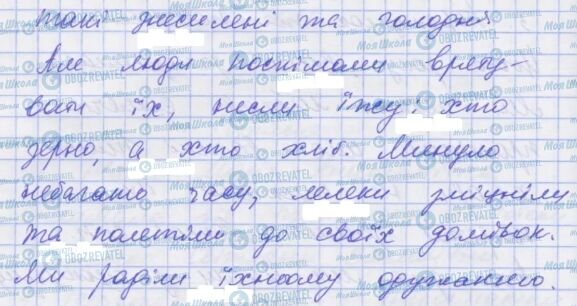 такі знесилені та голодні.
Але люди поспішали вряту-
вати їх, несли їжу: хто
зерно, а хто хліб. Минуло
небагато часу, лелеки зміцніли
та полетіли до своїх домівок.
Ми раділи їхньому одужанню.